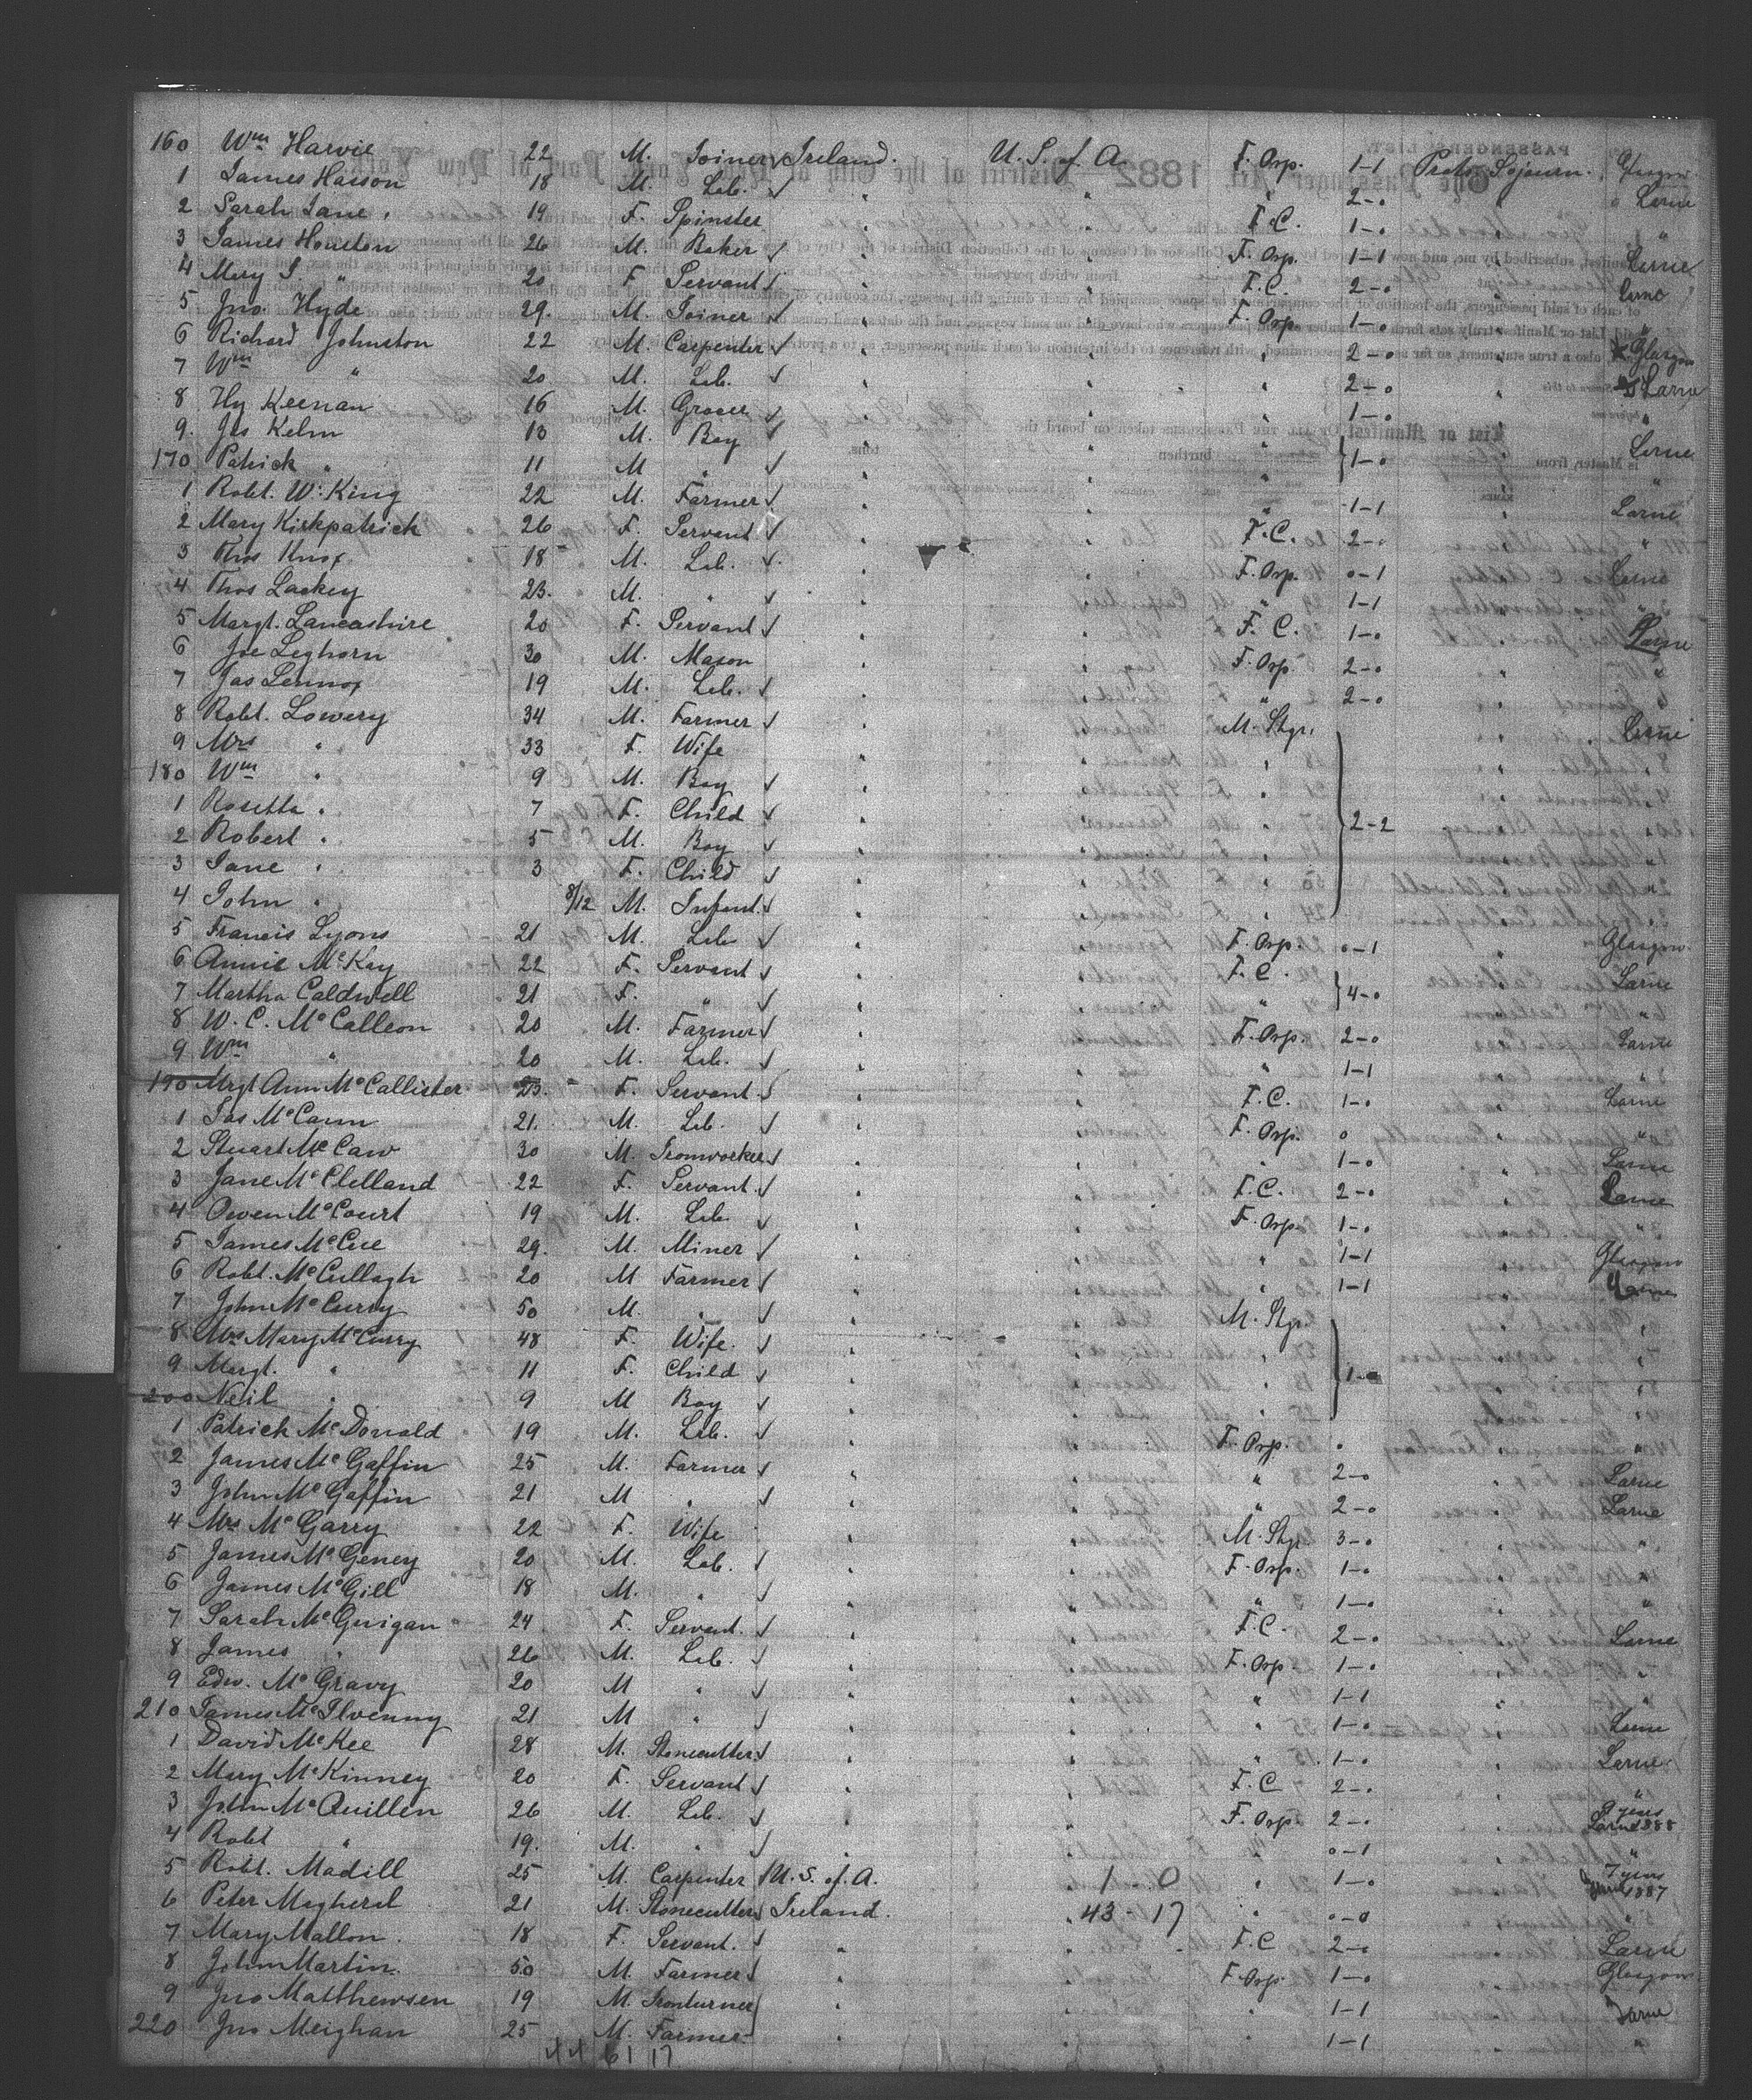 160 Wm Harvie 22 M. Joiner Ireland. U. S. of A. F. Orp. 1-1 Prot. Sojourn. Glasgow
1 James Hasson 18 M. Lab. " " " 2-0 " Larne
2 Sarah Jane " 19 F. Spinster " " F.C. 1-0 " "
3 James Houston 26 M. Baker " " F. Orp. 1-1 " Larne
4 Mary J. " 20 F Servant " " F.C. 2-0 " Larne
5 Jno. Hyde 29. M. Joiner " " F. Orp. 1-0 " "
6 Richard Johnston 22 M. Carpenter " " " 2-0 " Glasgow
7 Wm " 20 M. Lab. " " " 2-0 " Larne
8 Hy Keenan 16 M. Grocer " " " 1-0 " "
9. Jas Kelm 13 M. Boy " " " Larne
170 Patrick " 11 M " " " " 1-0 "
1 Robt. W. King 22 M. Farmer " " " 1-1 " Larne
2 Mary Kirkpatrick 26 F. Servant " " F.C. 2-0 " "
3 Thos Knox 18 M. Lab. " " F. Orp. 0-1 " Larne
4 Thos Lackey 23. M. " " " " 1-1 " "
5 Margt. Lancashire 20 F. Servant " " F. C. 1-0 " Larne
6 Joe Leghorn 30 M. Mason " " F. Orp. 2-0 " "
7 Jas Lennox 19 M. Lab. " " " 2-0 "
8 Robt. Lowery 34 M. Farmer " " M. Stgr. Larne
9 Mrs " 33 F. Wife " " "
180 Wm " 9 M. Boy " " "
1 Rosetta " 7 F. Child " " " 2-2
2 Robert " 5 M. Boy " " "
3 Jane " 3 F. Child " " "
4 John " 8/12 M. Infant " " "
5 Francis Lyons 21 M. Lab " " F. Orp. 0-1 " Glasgow.
6 Annie McKay 22 F. Servant " " F.C. " Larne
7 Martha Caldwell 21 F. " " " " 4-0 " "
8 W. C. McCalleon 20 M. Farmer " " F. Orp. 2-0 " Larne
9 Wm " 20 M. Lab. " " " 1-1 " "
190 Mrgt Ann McCallister 23. F. Servant. " " F.C. 1-0 " Larne
1 Jas McCann 21. M. Lab. " " F. Orp. 0 " "
2 Stuart McCaw 30 M. Ironworker " " " 1-0 " Larne
3 Jane McClelland 22 F. Servant. " " F.C. 2-0 " Larne
4 Owen McCourt 19 M. Lab. " " F. Orp. 1-0 " "
5 James McCue 29. M. Miner " " " 1-1 " Glasgow
6 Robt. McCullagh 20 M Farmer " " " 1-1 " Larne
7 John McCurry 50 M. " " " M. Stgr. "
8 Mrs Mary McCurry 48 F. Wife. " " " "
9 Margt. " 11 F. Child " " " 1-0 "
200 Neil " 9 M Boy " " " "
1 Patrick McDonald 19 M. Lab. " " F. Orp. 0 " "
2 James McGaffin 25 M. Farmer " " " 2-0 " Larne
3 John McGaffin 21 M " " " " 2-0 " Larne
4 Mrs McGarry 22 F. Wife " " M. Stgr 3-0 " "
5 James McGeney 20 M. Lab. " " F. Orp. 1-0 " "
6 James McGill 18 M. " " " " 1-0 " "
7 Sarah McGuigan 24 F. Servant. " " F.C. 2-0 " Larne
8 James " 26 M. Lab. " " F. Orp. 1-0 " "
9 Edw. McGravy 20 M " " " " 1-1 " "
210 James McIlvenny 21 M " " " " 1-0 " Larne
1 David McKee 28 M. Stonecutter " " " 1-0 " Larne
2 Mary McKinney 20 F. Servant " " F.C 2-0 " "
3 John McQuillen 26 M. Lab. " " F. Orp. 2-0 " Larne 1888
4 Robt " 19. M. " " " " 0-1 " "
5 Robt. Madill 25 M. Carpenter U. S. of A. 1 0 " 1-0 " 7 yrs 1887
6 Peter Magheral 21 M. Stonecutter Ireland. " 43 - 17 " 0-0 " "
7 Mary Mallon. 18 F. Servant. " " F.C 2-0 " Larne
8 John Martin. 50 M. Farmer " " F. Orp. 1-0 " Glasgow
9 Jno Matthewsen 19 M. Ironturner " " " 1-1 " Larne
220 Jno Meighan 25 M. Farmer " " " 1-1 " "
44 61 17